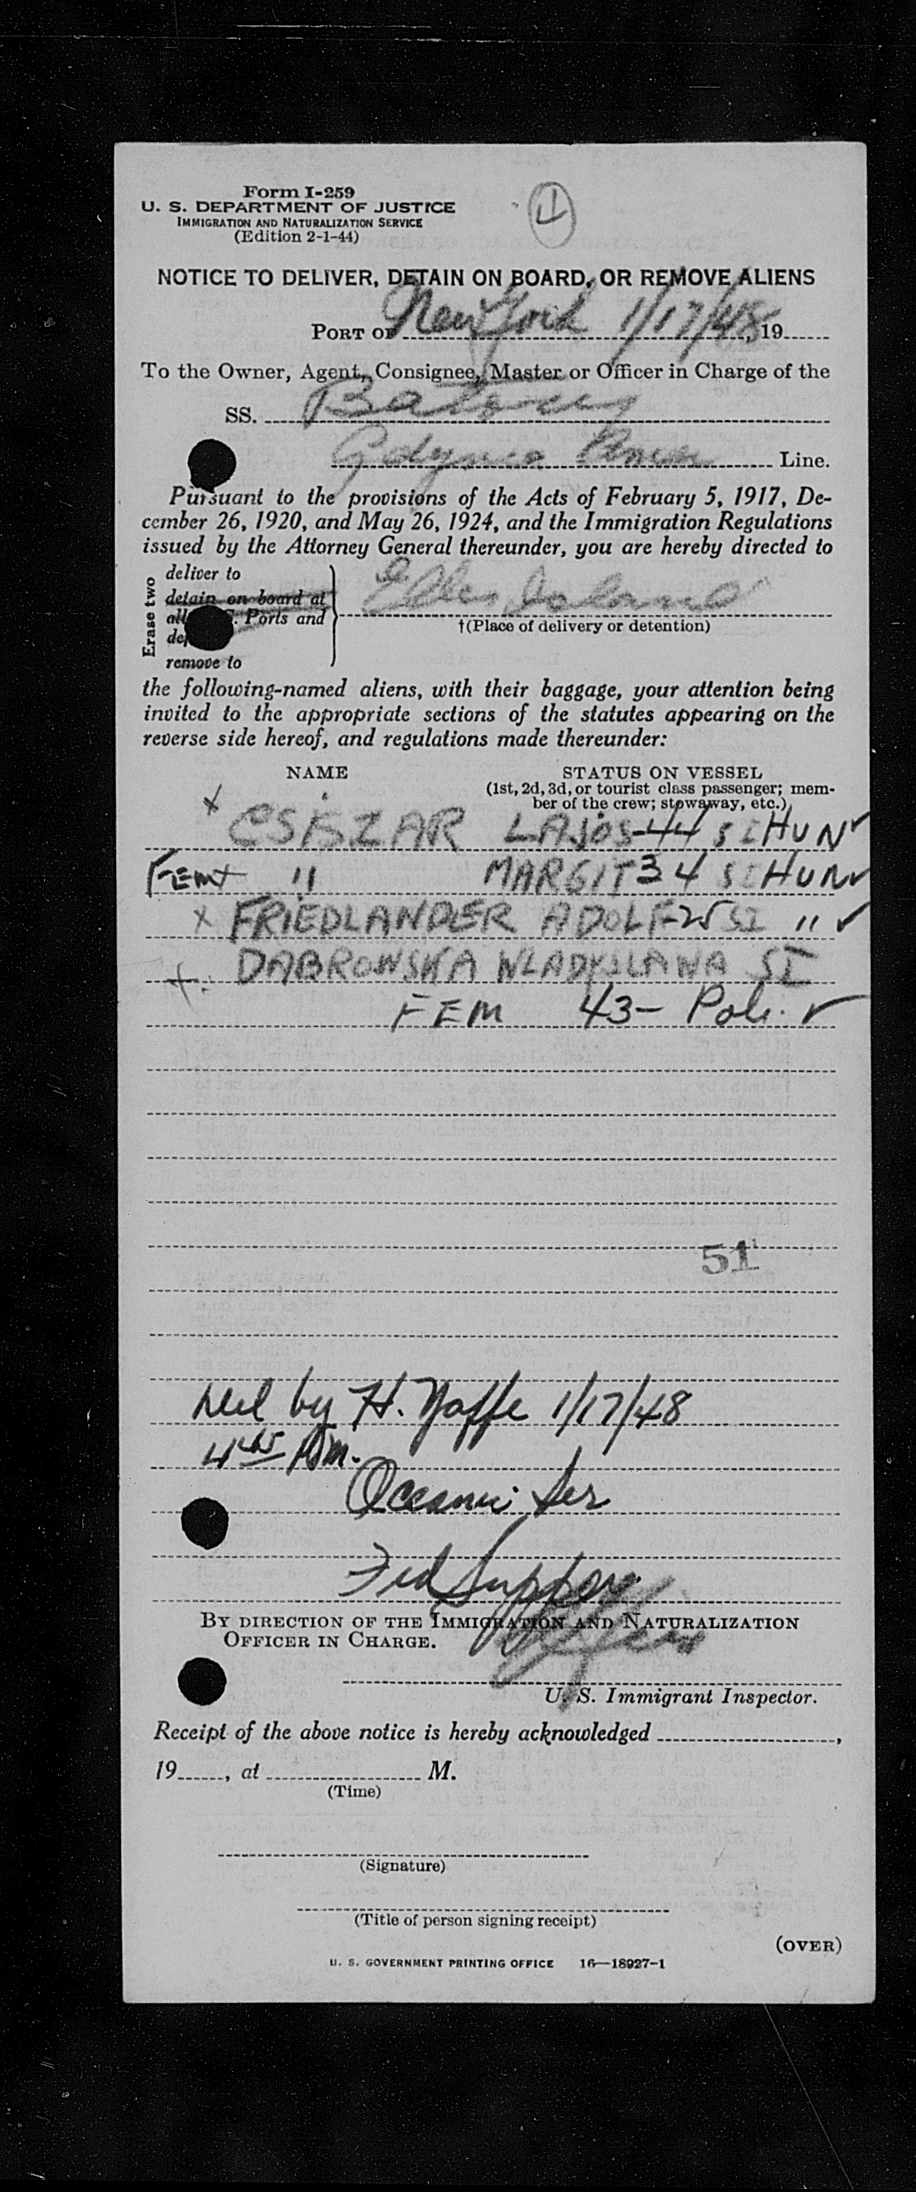 Form I-259
U. S. DEPARTMENT OF JUSTICE
IMMIGRATION AND NATURALIZATION SERVICE
(Edition 2-1-44)
NOTICE TO DELIVER, DETAIN ON BOARD, OR REMOVE ALIENS
PORT OF New York 1/17/48, 19
To the Owner, Agent, Consignee, Master or Officer in Charge of the
SS. Batory
Gdynia Amer Line.
Pursuant to the provisions of the Acts of February 5, 1917, De-
cember 26, 1920, and May 26, 1924, and the Immigration Regulations
issued by the Attorney General thereunder, you are hereby directed to
Erase two
deliver to
detain on board at
all Ports and
remove to
Ellis Island
†(Place of delivery or detention)
the following-named aliens, with their baggage, your attention being
invited to the appropriate sections of the statutes appearing on the
reverse side hereof, and regulations made thereunder:
NAME STATUS ON VESSEL
(1st, 2d, 3d, or tourist class passenger; mem-
ber of the crew; stowaway, etc.)
x CSISZAR LAJOS-44 SI HUN ✓
FEM x " MARGIT 34 SI HUN ✓
x FRIEDLANDER ADOLF-25 SI " ✓
x DABROWSKA WLADYSLAWA SI
FEM 43- Pol. ✓
51
Del by H. Yoffe 1/17/48
4 45 PM.
Oceanic Ser
BY DIRECTION OF THE IMMIGRATION AND NATURALIZATION
OFFICER IN CHARGE.
U. S. Immigrant Inspector.
Receipt of the above notice is hereby acknowledged ,
19 , at M.
(Time)
(Signature)
(Title of person signing receipt)
(OVER)
U. S. GOVERNMENT PRINTING OFFICE 16—18927-1